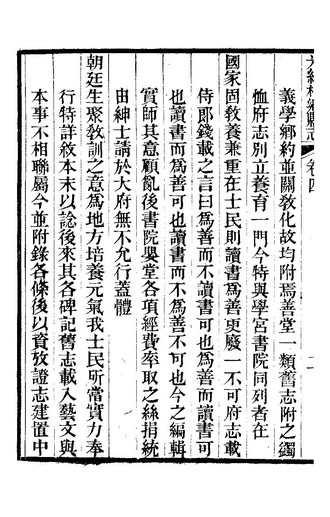 義學鄉約並關敎化故均附焉善堂一類舊志附之蠲
恤府志別立養育一門今特與學宮書院同列者在
國家固敎養兼重在士民則讀書爲善更廢一不可府志載
侍郎錢載之言曰爲善而不讀書可也爲善而讀書可
也讀書而爲善可也讀書而不爲善不可也今之編輯
實師其意顧亂後書院嬰堂各項經費率取之絲捐統
由紳士請於大府無不允行蓋體
朝廷生聚敎訓之意爲地方培養元氣我士民所當實力奉
行特詳敘本末以諗後來其各碑記舊志載入藝文與
本事不相聯屬今並附錄各條後以資攷證志建置中
卷四